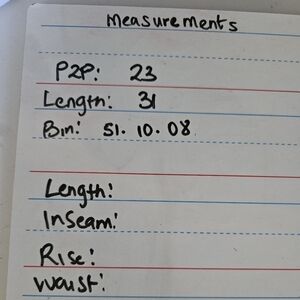 Measurements
P2P: 23
Length: 31
Bin: S1. 10. 08
Length:
Inseam:
Rise:
Waist: